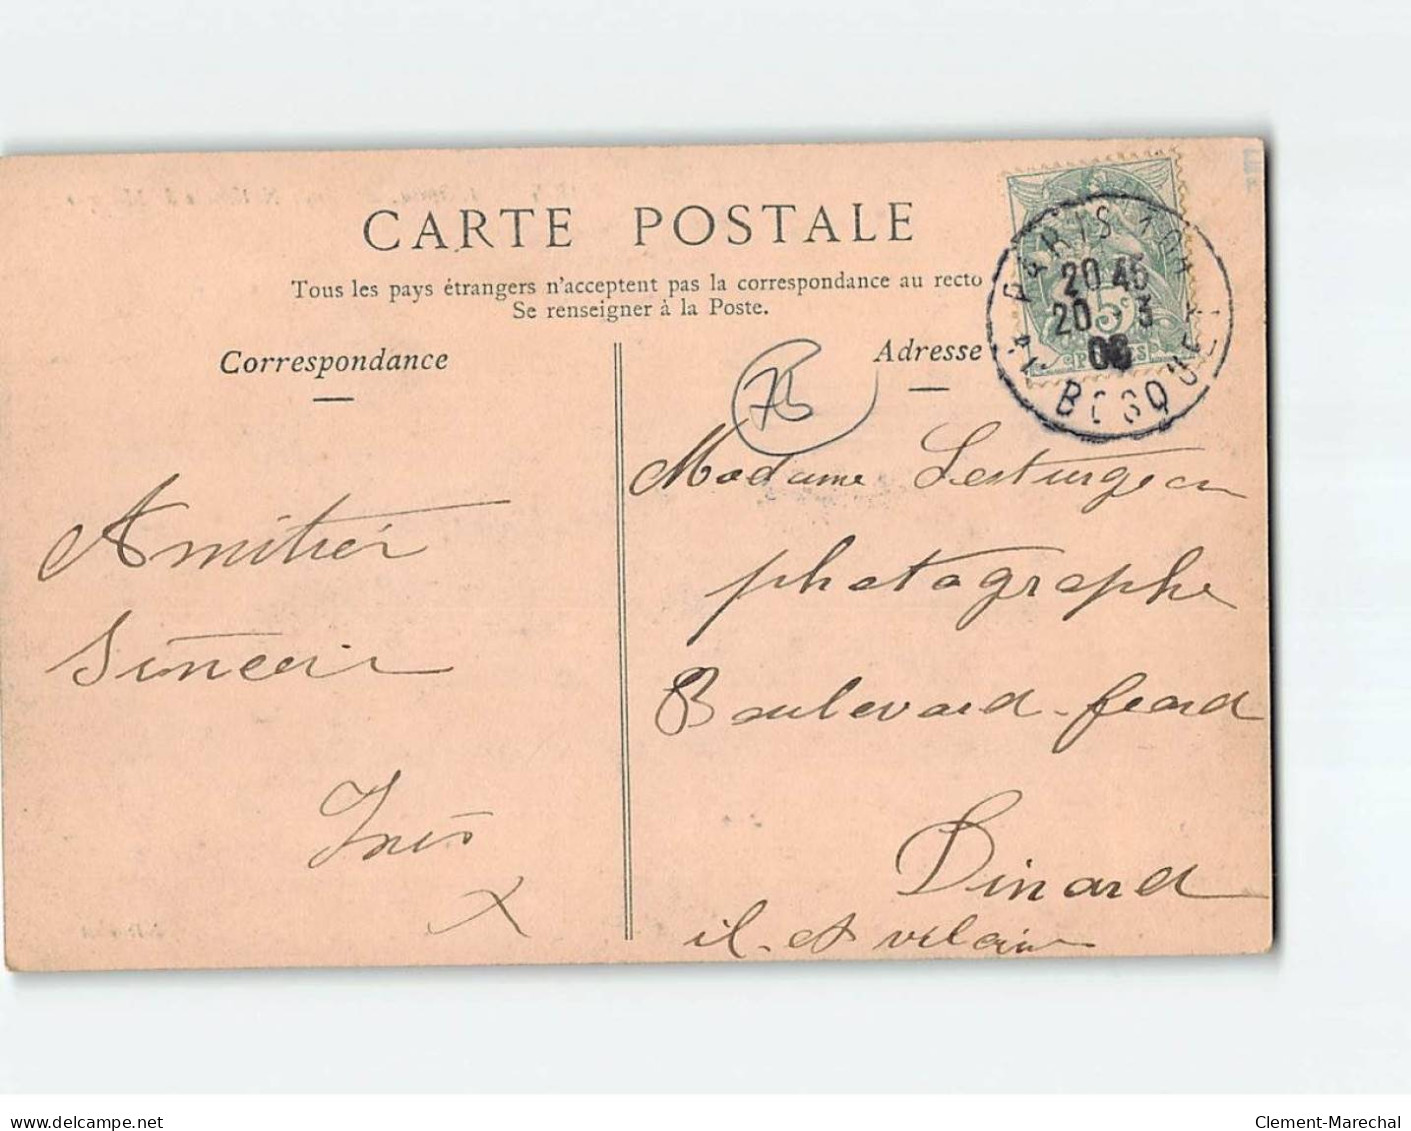 CARTE POSTALE
Tous les pays étrangers n'acceptent pas la correspondance au recto
Se renseigner à la Poste.
Correspondance
Adresse
PARIS 104
20 45
20 - 3
06
AV BOSQUET
5c
75
Amitiér
Sincèir
Inès
Madame Lesturgeon
photographe
Boulevard-feard
Dinard
il-et vilain
delcampe.net
Clement-Marechal